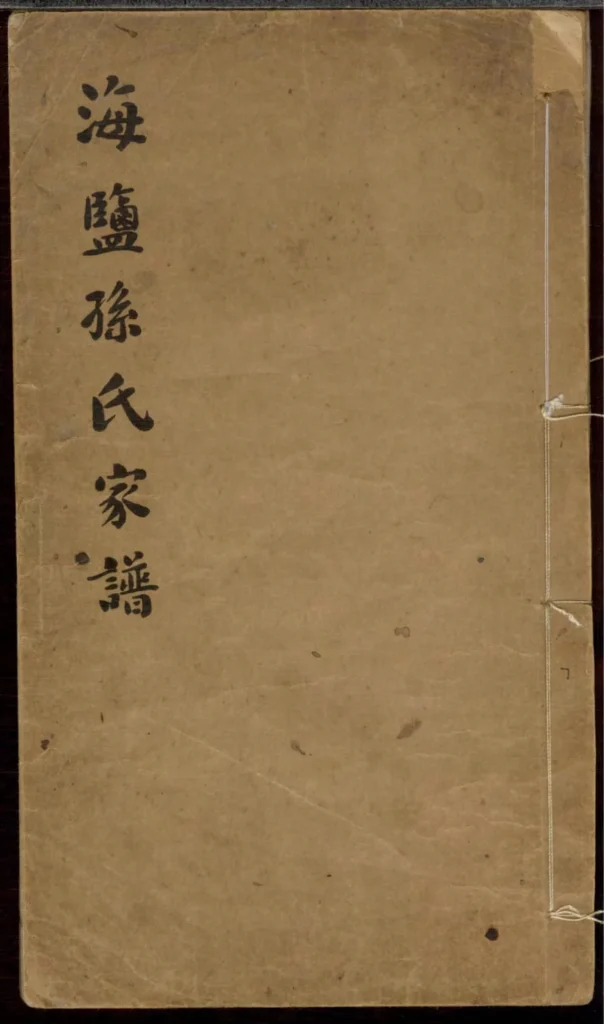 海鹽孫氏家譜